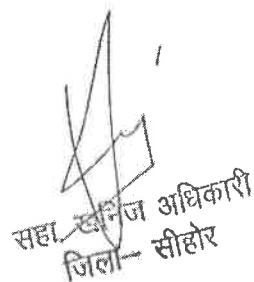 सहा. खनिज अधिकारी
जिला- सीहोर